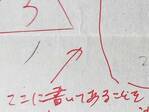 3
ここに書いてあることを